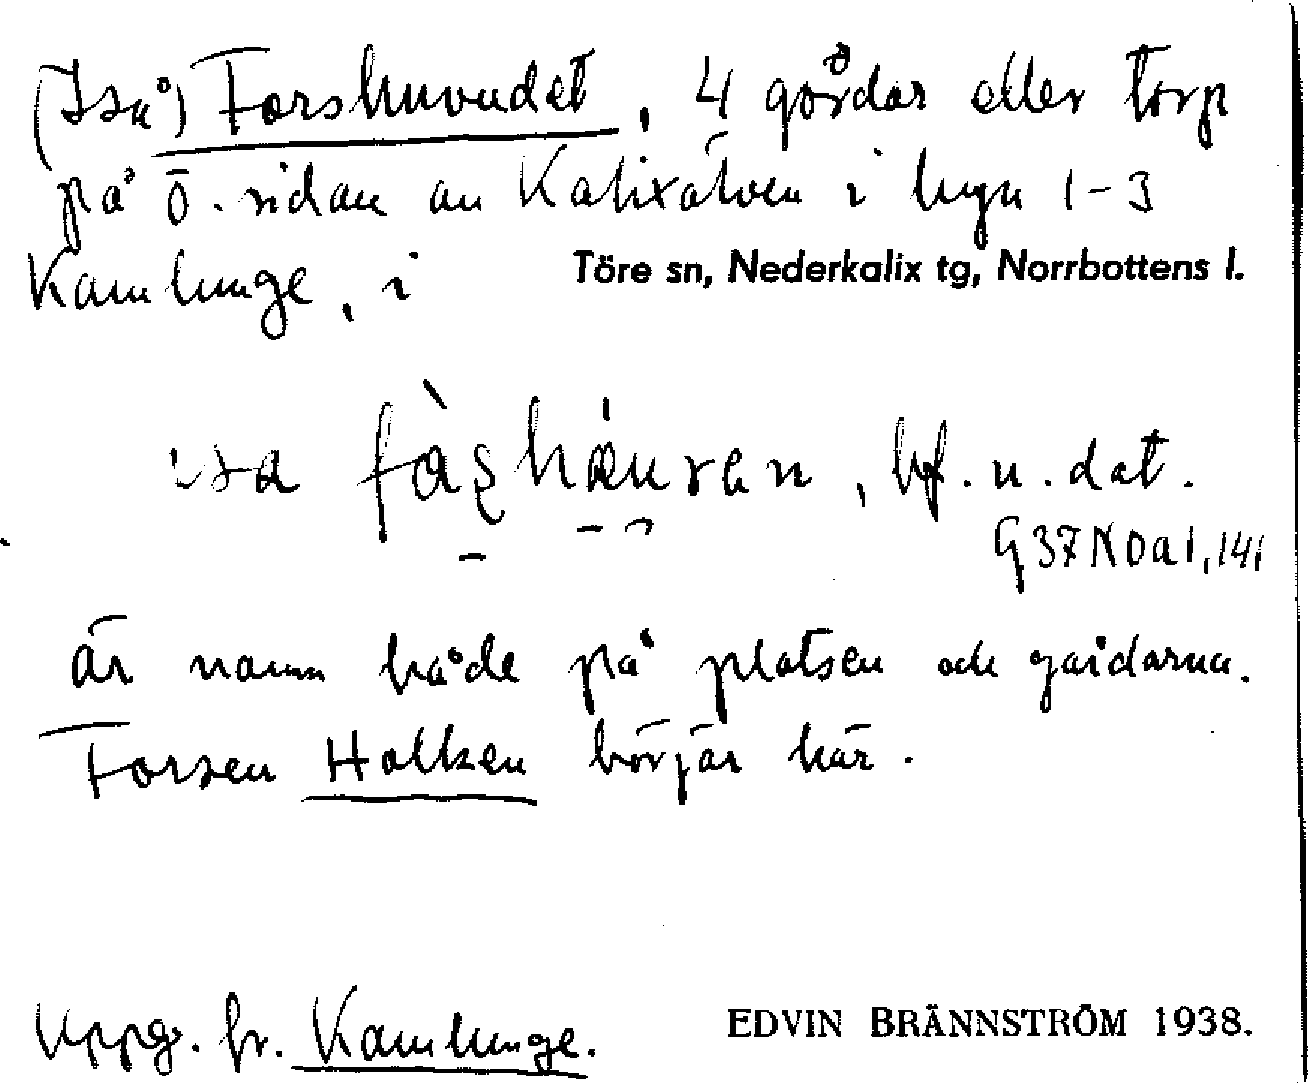 (Iså) Forshuvudet, 4 gårdar eller torp
på ö. sidan av Kalixälven i byn 1-3
Kamlunge, i Töre sn, Nederkalix tg, Norrbottens l.
bf. u. dat.
G37NDa1,141
är namn både på platsen och gårdarna.
Forsen Holken börjar här.
Uppg. fr. Kamlunge.
EDVIN BRÄNNSTRÖM 1938.